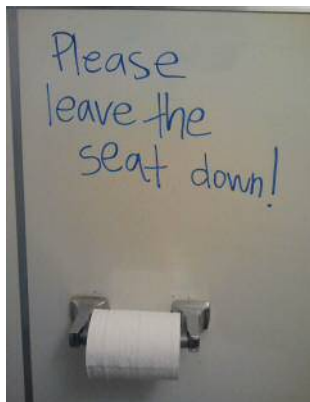 Please
leave the
seat down!